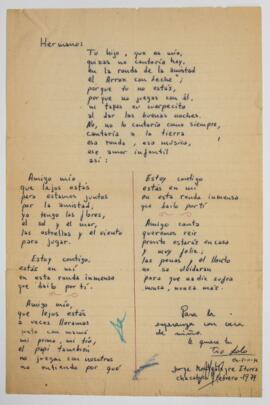 Hermano:
Tu hijo, que es mío,
quizás no cantaría hoy,
en la ronda de la amistad
el Arroz con leche;
porque tu no estás,
porque no juegas con él,
ni tapas su cuerpecito
al dar las buenas noches.
No, no lo cantaría como siempre,
cantaría a la tierra
esa ronda, esa música,
ese amor infantil
así:
Amigo mío
que lejos estás
para estarnos juntos
por la amistad,
yo tengo las flores,
el sol y el mar,
las estrellas y el viento
para jugar.
Estoy contigo,
estás en mí
en esta ronda inmensa
que bailo por ti.
Amigo mío,
que lejos estás
a veces lloramos
junto con mamá
mi primo, mi tía,
el papi también
no juegas con nosotros
no entiendo por qué
Estoy contigo
estás en mí
en esta ronda inmensa
que bailo por ti
Amigo canta
queremos reír
pronto estarás en casa
y muy feliz,
las penas y el llanto
se olvidarán
para que nadie sufra
nunca, nunca más.
Para la
esperanza con cara
de niño.
le quiere tu
Tío Lolo
Jorge Montealegre Iturra
Chacabuco, febrero - 1974